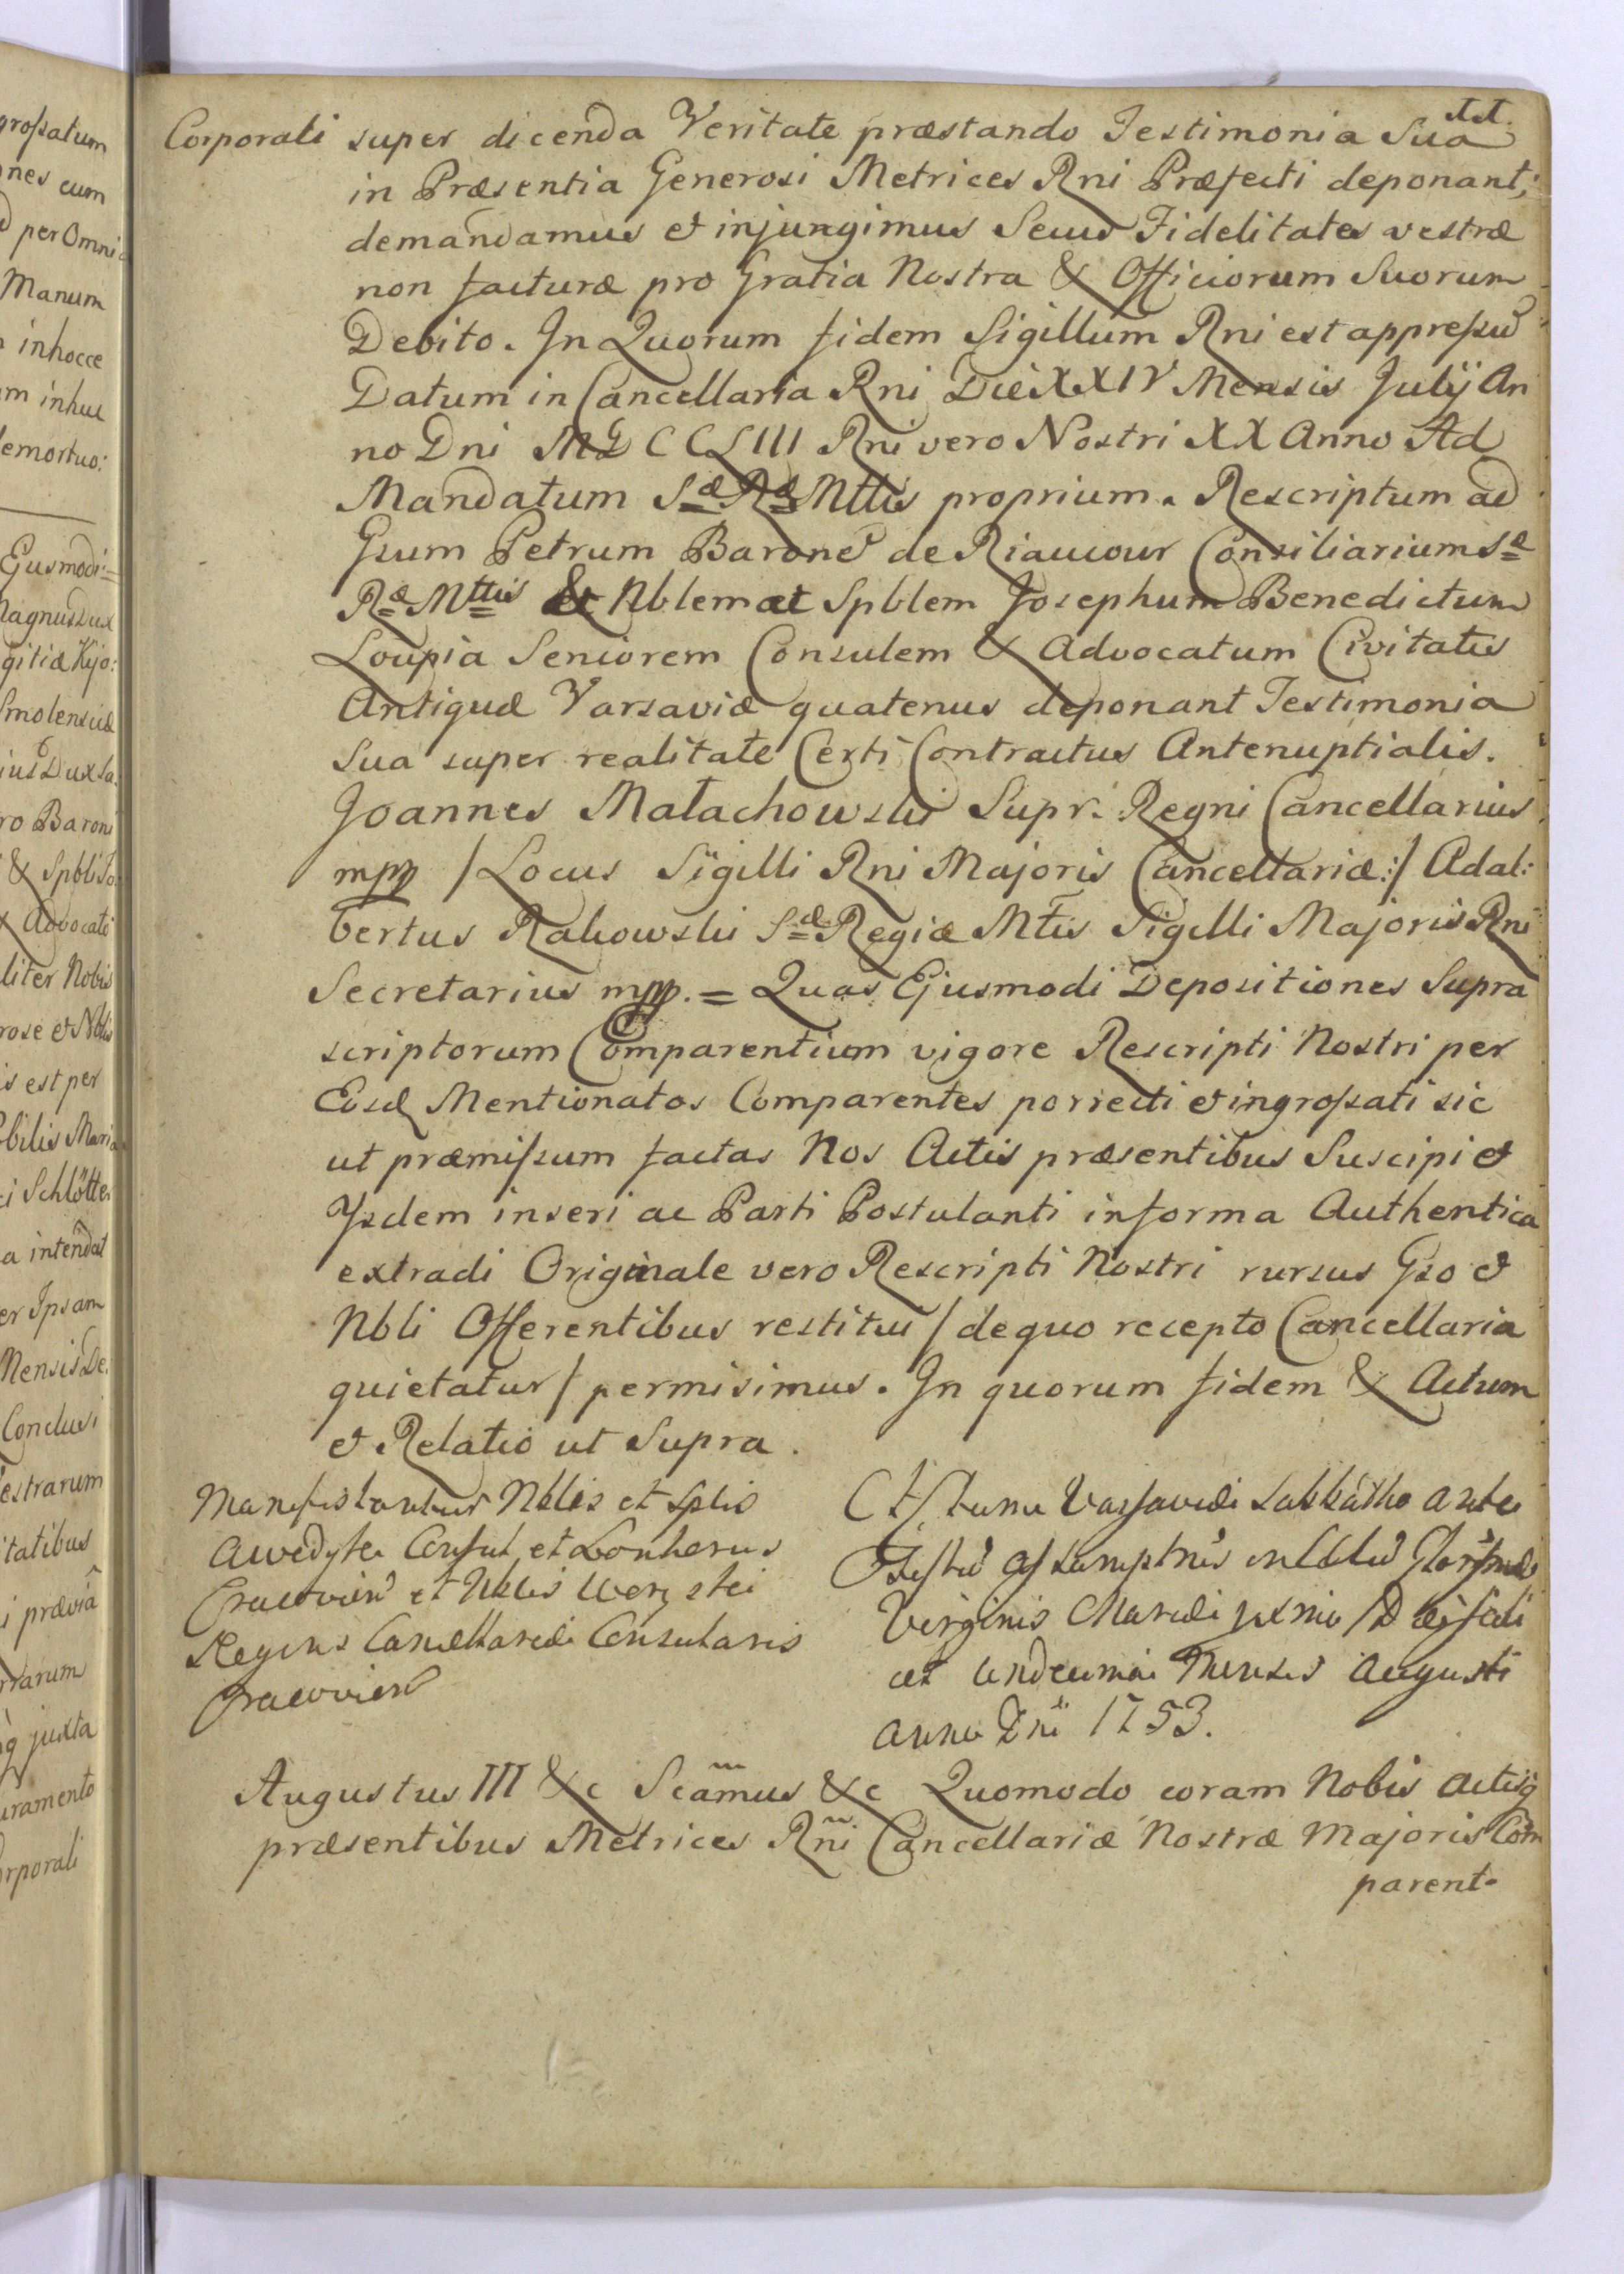 grossatum
nes cum
per Omni
Manum
inhocce
m inhuc
emortuo:
Ejusmodi=
Magnus Dux
gitiæ Kijo:
Smolensciæ
ius Dux Sa
ro Baroni
& Spbli Jo
Advocati
liter Nobis
rose et Nbli
is est per
bilis Maria
i Schlötter
a intendat
er Ipsam
Mensis De:
Conclusi
estrarum
itatibus
i præviâ
rrarum
juxta
uramento
orporali
Corporali super dicenda Veritate præstando Testimonia Sua
in Præsentia Generosi Metrices Rni Præfecti deponant,
demandamus et injungimus Secus Fidelitates vestræ
non facturæ pro Gratia Nostra & Officiorum Suorum
Debito. In Quorum fidem Sigillum Rni est appressũ
Datum in Cancellaria Rni Die XXIV Mensis Julij An
no Dni MDCCLIII Rni vero Nostri XX Anno Ad
Mandatum Sæ Ræ Mttis proprium. Rescriptum ad
Gsum Petrum Baronẽ de Riaucour Consiliarium Sæ
Ræ Mttis & Nblem at Spblem Josephum Benedictum
Loupia Seniorem Consulem & Advocatum Civitatis
Antiquæ Varsaviæ quatenus deponant Testimonia
Sua super realitate Certi Contractus Antenuptialis.
Joannes Małachowski Supr. Regni Cancellarius
mpp / Locus Sigilli Rni Majoris Cancellariæ:/ Adal:
bertus Rakowski Sæ Regiæ Mtis Sigilli Majoris Rni
Secretarius mpp. = Quas Ejusmodi Depositiones Supra
scriptorum Comparentium vigore Rescripti Nostri per
Eosd Mentionatos Comparentes porrecti et ingrossati sic
ut præmissum factas Nos Actis præsentibus Suscipi et
Ysdem inseri ac Parti Postulanti in forma Authentica
extradi Originale vero Rescripti Nostri rursus Gso et
Nbli Offerentibus restitui / de quo recepto Cancellaria
quietatur / permisimus. In quorum fidem & Actum
et Relatio ut Supra.
Manifestantur Nblis et Splis
Consul et Lonherus
Cracovien et Nblis
Regens Cancellariæ Consularis
Cracovien
Actum Varsaviæ Sabbatho ante
Festũ Assumptnis in Cælũ Glorsmæ
Virginis Mariæ pxmo / D eisdi
et undecima Mensis Augusti
Anno Dni 1753.
Augustus III &c Scamus &c Quomodo coram Nobis Actisq
præsentibus Metrices Rni Cancellariæ Nostræ Majoris Com
parent.